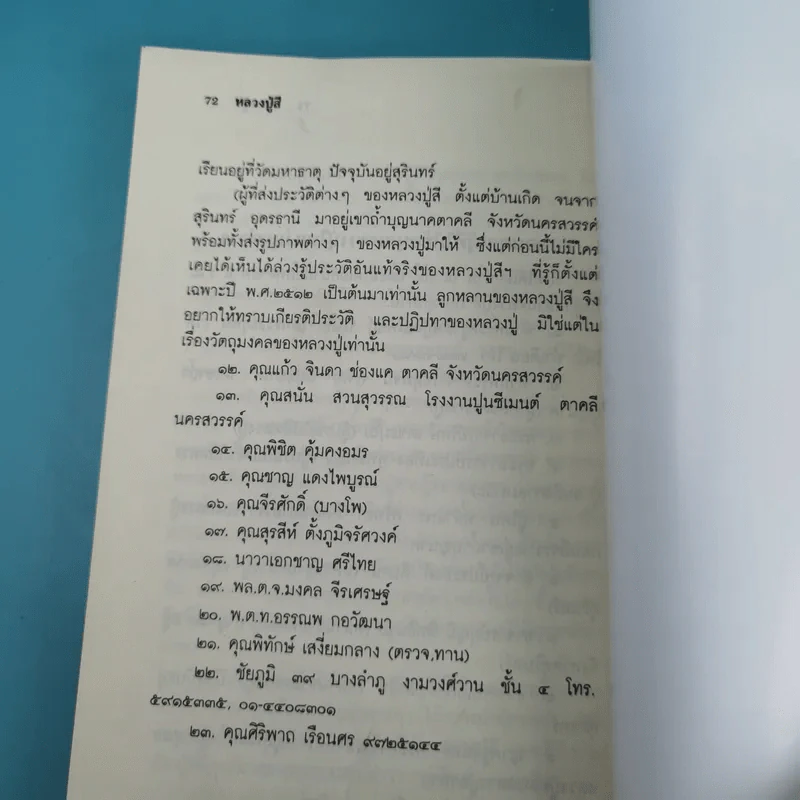 72 หลวงปู่สี
เรียนอยู่ที่วัดมหาธาตุ ปัจจุบันอยู่สุรินทร์
(ผู้ที่ส่งประวัติต่างๆ ของหลวงปู่สี ตั้งแต่บ้านเกิด จนจาก
สุรินทร์ อุดรธานี มาอยู่เขาถ้ำบุญนาคตาคลี จังหวัดนครสวรรค์
พร้อมทั้งส่งรูปภาพต่างๆ ของหลวงปู่มาให้ ซึ่งแต่ก่อนนี้ไม่มีใคร
เคยได้เห็นได้ล่วงรู้ประวัติอันแท้จริงของหลวงปู่สีฯ ที่รู้ก็ตั้งแต่
เฉพาะปี พ.ศ.๒๕๑๒ เป็นต้นมาเท่านั้น ลูกหลานของหลวงปู่สี จึง
อยากให้ทราบเกียรติประวัติ และปฏิปทาของหลวงปู่ มิใช่แต่ใน
เรื่องวัตถุมงคลของหลวงปู่เท่านั้น
๑๒. คุณแก้ว จินดา ช่องแค ตาคลี จังหวัดนครสวรรค์
๑๓. คุณสนั่น สวนสุวรรณ โรงงานปูนซีเมนต์ ตาคลี
นครสวรรค์
๑๔. คุณพิชิต คุ้มคงอมร
๑๕. คุณชาญ แดงไพบูรณ์
๑๖. คุณจีรศักดิ์ (บางโพ)
๑๗. คุณสุรสีห์ ตั้งภูมิจรัศวงค์
๑๘. นาวาเอกชาญ ศรีไทย
๑๙. พล.ต.จ.มงคล จีรเศรษฐ์
๒๐. พ.ต.ท.อรรณพ กอวัฒนา
๒๑. คุณพิทักษ์ เสงี่ยมกลาง (ตรวจ.ทาน)
๒๒. ชัยภูมิ ๓๙ บางลำภู งามวงศ์วาน ชั้น ๔ โทร.
๕๙๑๕๓๓๕, ๐๑-๔๔๐๘๓๐๑
๒๓. คุณศิริพาถ เรือนศร ๙๗๒๕๑๔๔